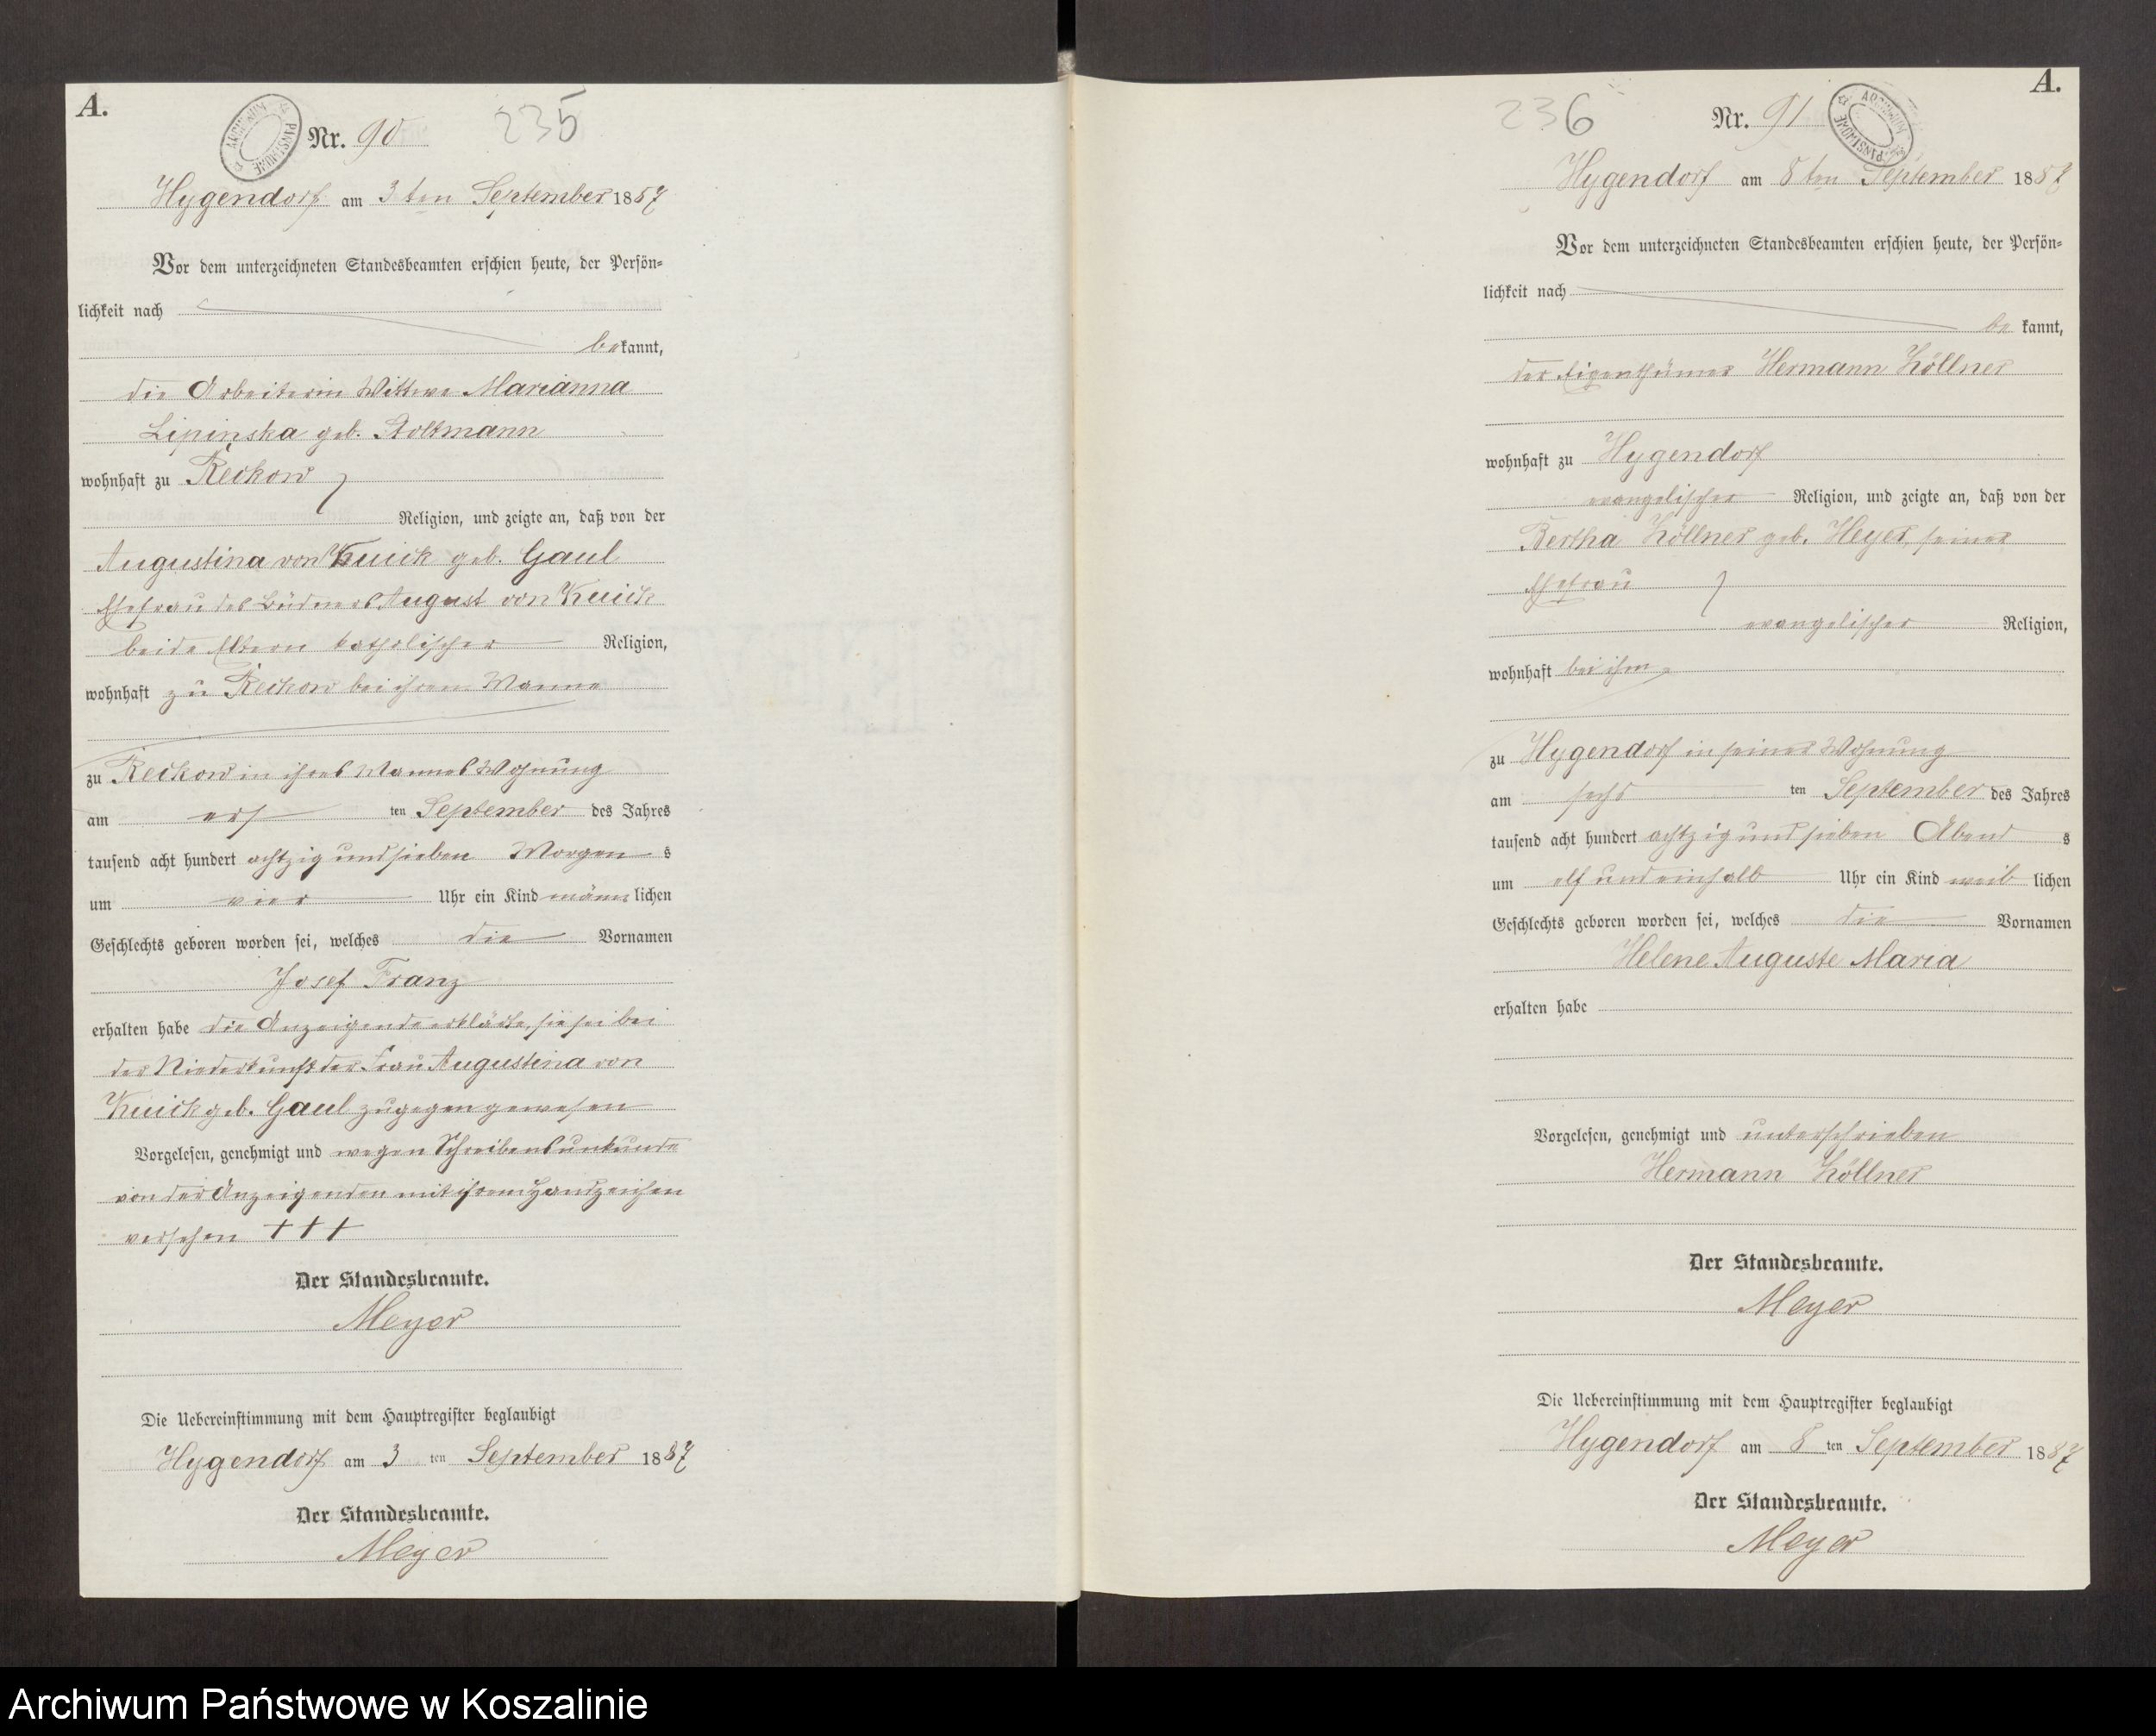 A.
Nr. 90
235
Hygendorf am 3 ten September 1887
Vor dem unterzeichneten Standesbeamten erschien heute, der Persön-
lichkeit nach
bekannt,
die Arbeiterin Wittwe Marianna
Lipinska geb. Stoltmann
wohnhaft zu Reckow
Religion, und zeigte an, daß von der
Augustina von Kuick geb. Gaul
Ehefrau des Büdners August von Kuick
beide Eltern katholischer Religion,
wohnhaft zu Reckow bei ihrem Manne
zu Reckow in ihres Mannes Wohnung
am erf ten September des Jahres
tausend acht hundert achtzig und sieben Morgens
um vier Uhr ein Kind männlichen
Geschlechts geboren worden sei, welches die Vornamen
Josef Franz
erhalten habe die Anzeigende erklärte, sie sei bei
der Niederkunft der Frau Augustina von
Kuick geb. Gaul zugegen gewesen
Vorgelesen, genehmigt und wegen Schreibensunkunde
von der Anzeigenden mit ihrem Handzeichen
versehen +++
Der Standesbeamte.
Meyer
Die Uebereinstimmung mit dem Hauptregister beglaubigt
Hygendorf am 3 ten September 1887
Der Standesbeamte.
Meyer
A.
236
Nr. 91
Hygendorf am 8 ten September 1887
Vor dem unterzeichneten Standesbeamten erschien heute, der Persön-
lichkeit nach
be kannt,
der Eigenthümer Hermann Zöllner
wohnhaft zu Hygendorf
evangelischer Religion, und zeigte an, daß von der
Bertha Zöllner geb. Heyer, seiner
Ehefrau
evangelischer Religion,
wohnhaft bei ihm
zu Hygendorf in seiner Wohnung
am sechs ten September des Jahres
tausend acht hundert achtzig und sieben Abends
um elf und einhalb Uhr ein Kind weib lichen
Geschlechts geboren worden sei, welches die Vornamen
Helene Auguste Maria
erhalten habe
Vorgelesen, genehmigt und unterschrieben
Hermann Zöllner
Der Standesbeamte.
Meyer
Die Uebereinstimmung mit dem Hauptregister beglaubigt
Hygendorf am 8 ten September 1887
Der Standesbeamte.
Meyer
Archiwum Państwowe w Koszalinie